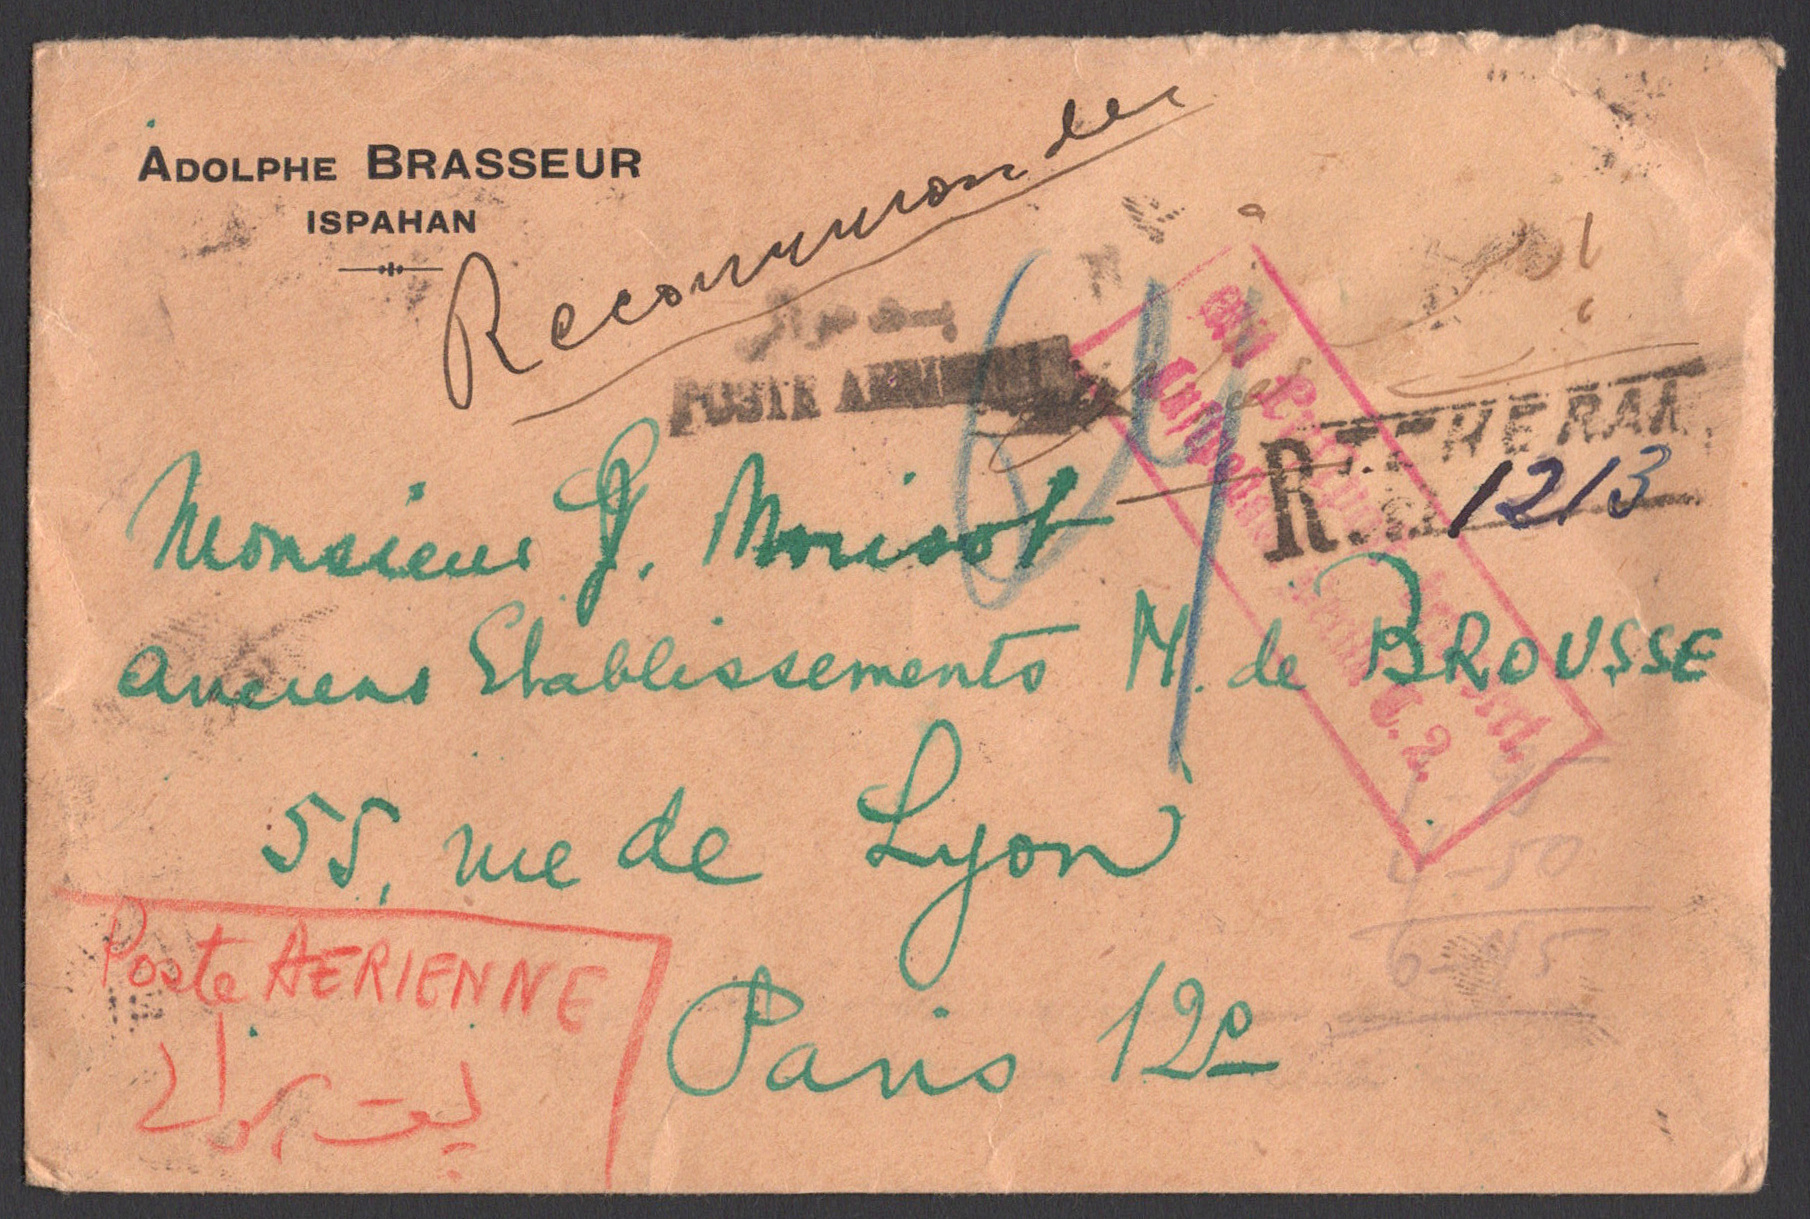 ADOLPHE BRASSEUR
ISPAHAN
Recommander
پست هوائی
POSTE AERIENNE
R TEHERAN
1213
Monsieur J. Morisot
anciens Etablissements M. de BROUSSE
55, rue de Lyon
Paris 12e
Poste AERIENNE
پست هوائی
C. 2.
4-50
6-45